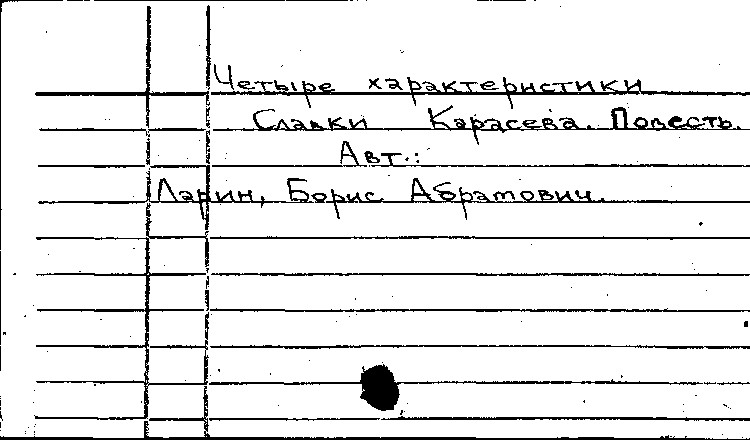 Четыре характеристики
Славки Карасева. Повесть.
Авт.:
Ларин, Борис Абрамович.